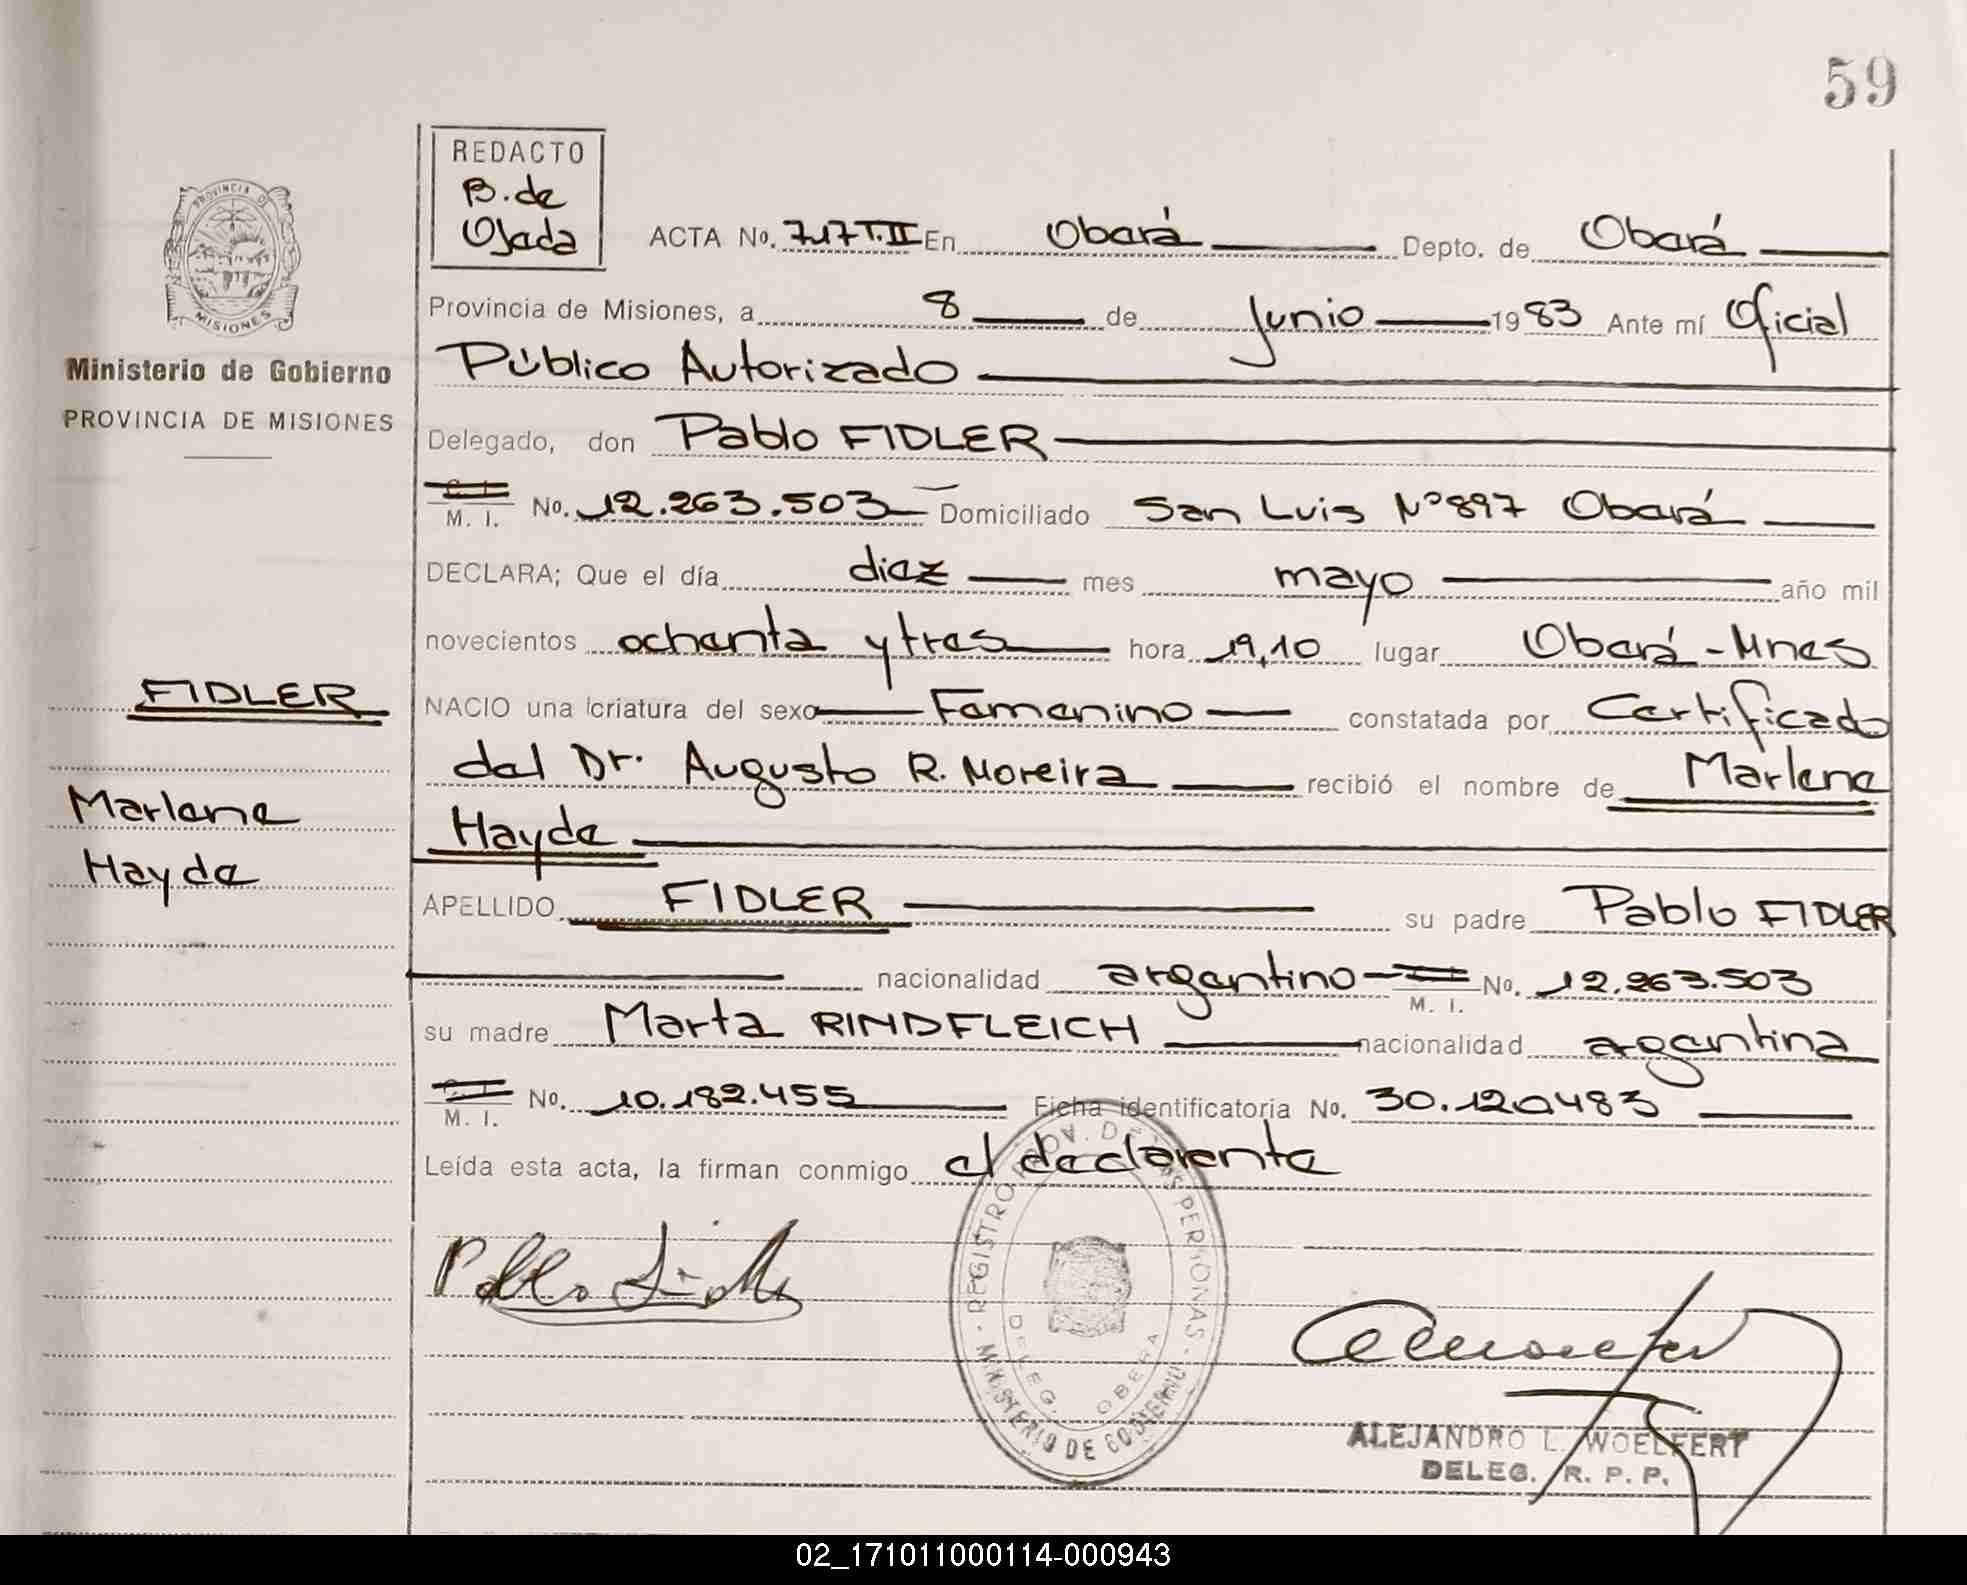 59
REDACTO
B. de
Ojeda
ACTA No. 717 T.II En Oberá Depto. de Oberá
PROVINCIA DE
MISIONES
Provincia de Misiones, a 8 de Junio 1983 Ante mí Oficial
Ministerio de Gobierno
PROVINCIA DE MISIONES
Público Autorizado
Delegado, don Pablo FIDLER
M. I. No. 12.263.503 Domiciliado San Luis Nº 897 Oberá
DECLARA; Que el día diez mes mayo año mil
novecientos ochenta y tres hora 19,10 lugar Oberá-Mnes
FIDLER
NACIO una criatura del sexo Femenino constatada por Certificado
del Dr. Augusto R. Moreira recibió el nombre de Marlene
Marlene
Hayde
Hayde
APELLIDO FIDLER su padre Pablo FIDLER
nacionalidad argentino M. I. No. 12.263.503
su madre Marta RINDFLEICH nacionalidad argentina
M. I. No. 10.182.455 Ficha identificatoria No. 30.120483
Leída esta acta, la firman conmigo el declarente
Pablo Fidler
REGISTRO PROV. DE LAS PERSONAS
DELEG. OBERA
MINISTERIO DE GOBIERNO
ALEJANDRO L. WOELFERT
DELEG. R. P. P.
02_171011000114-000943